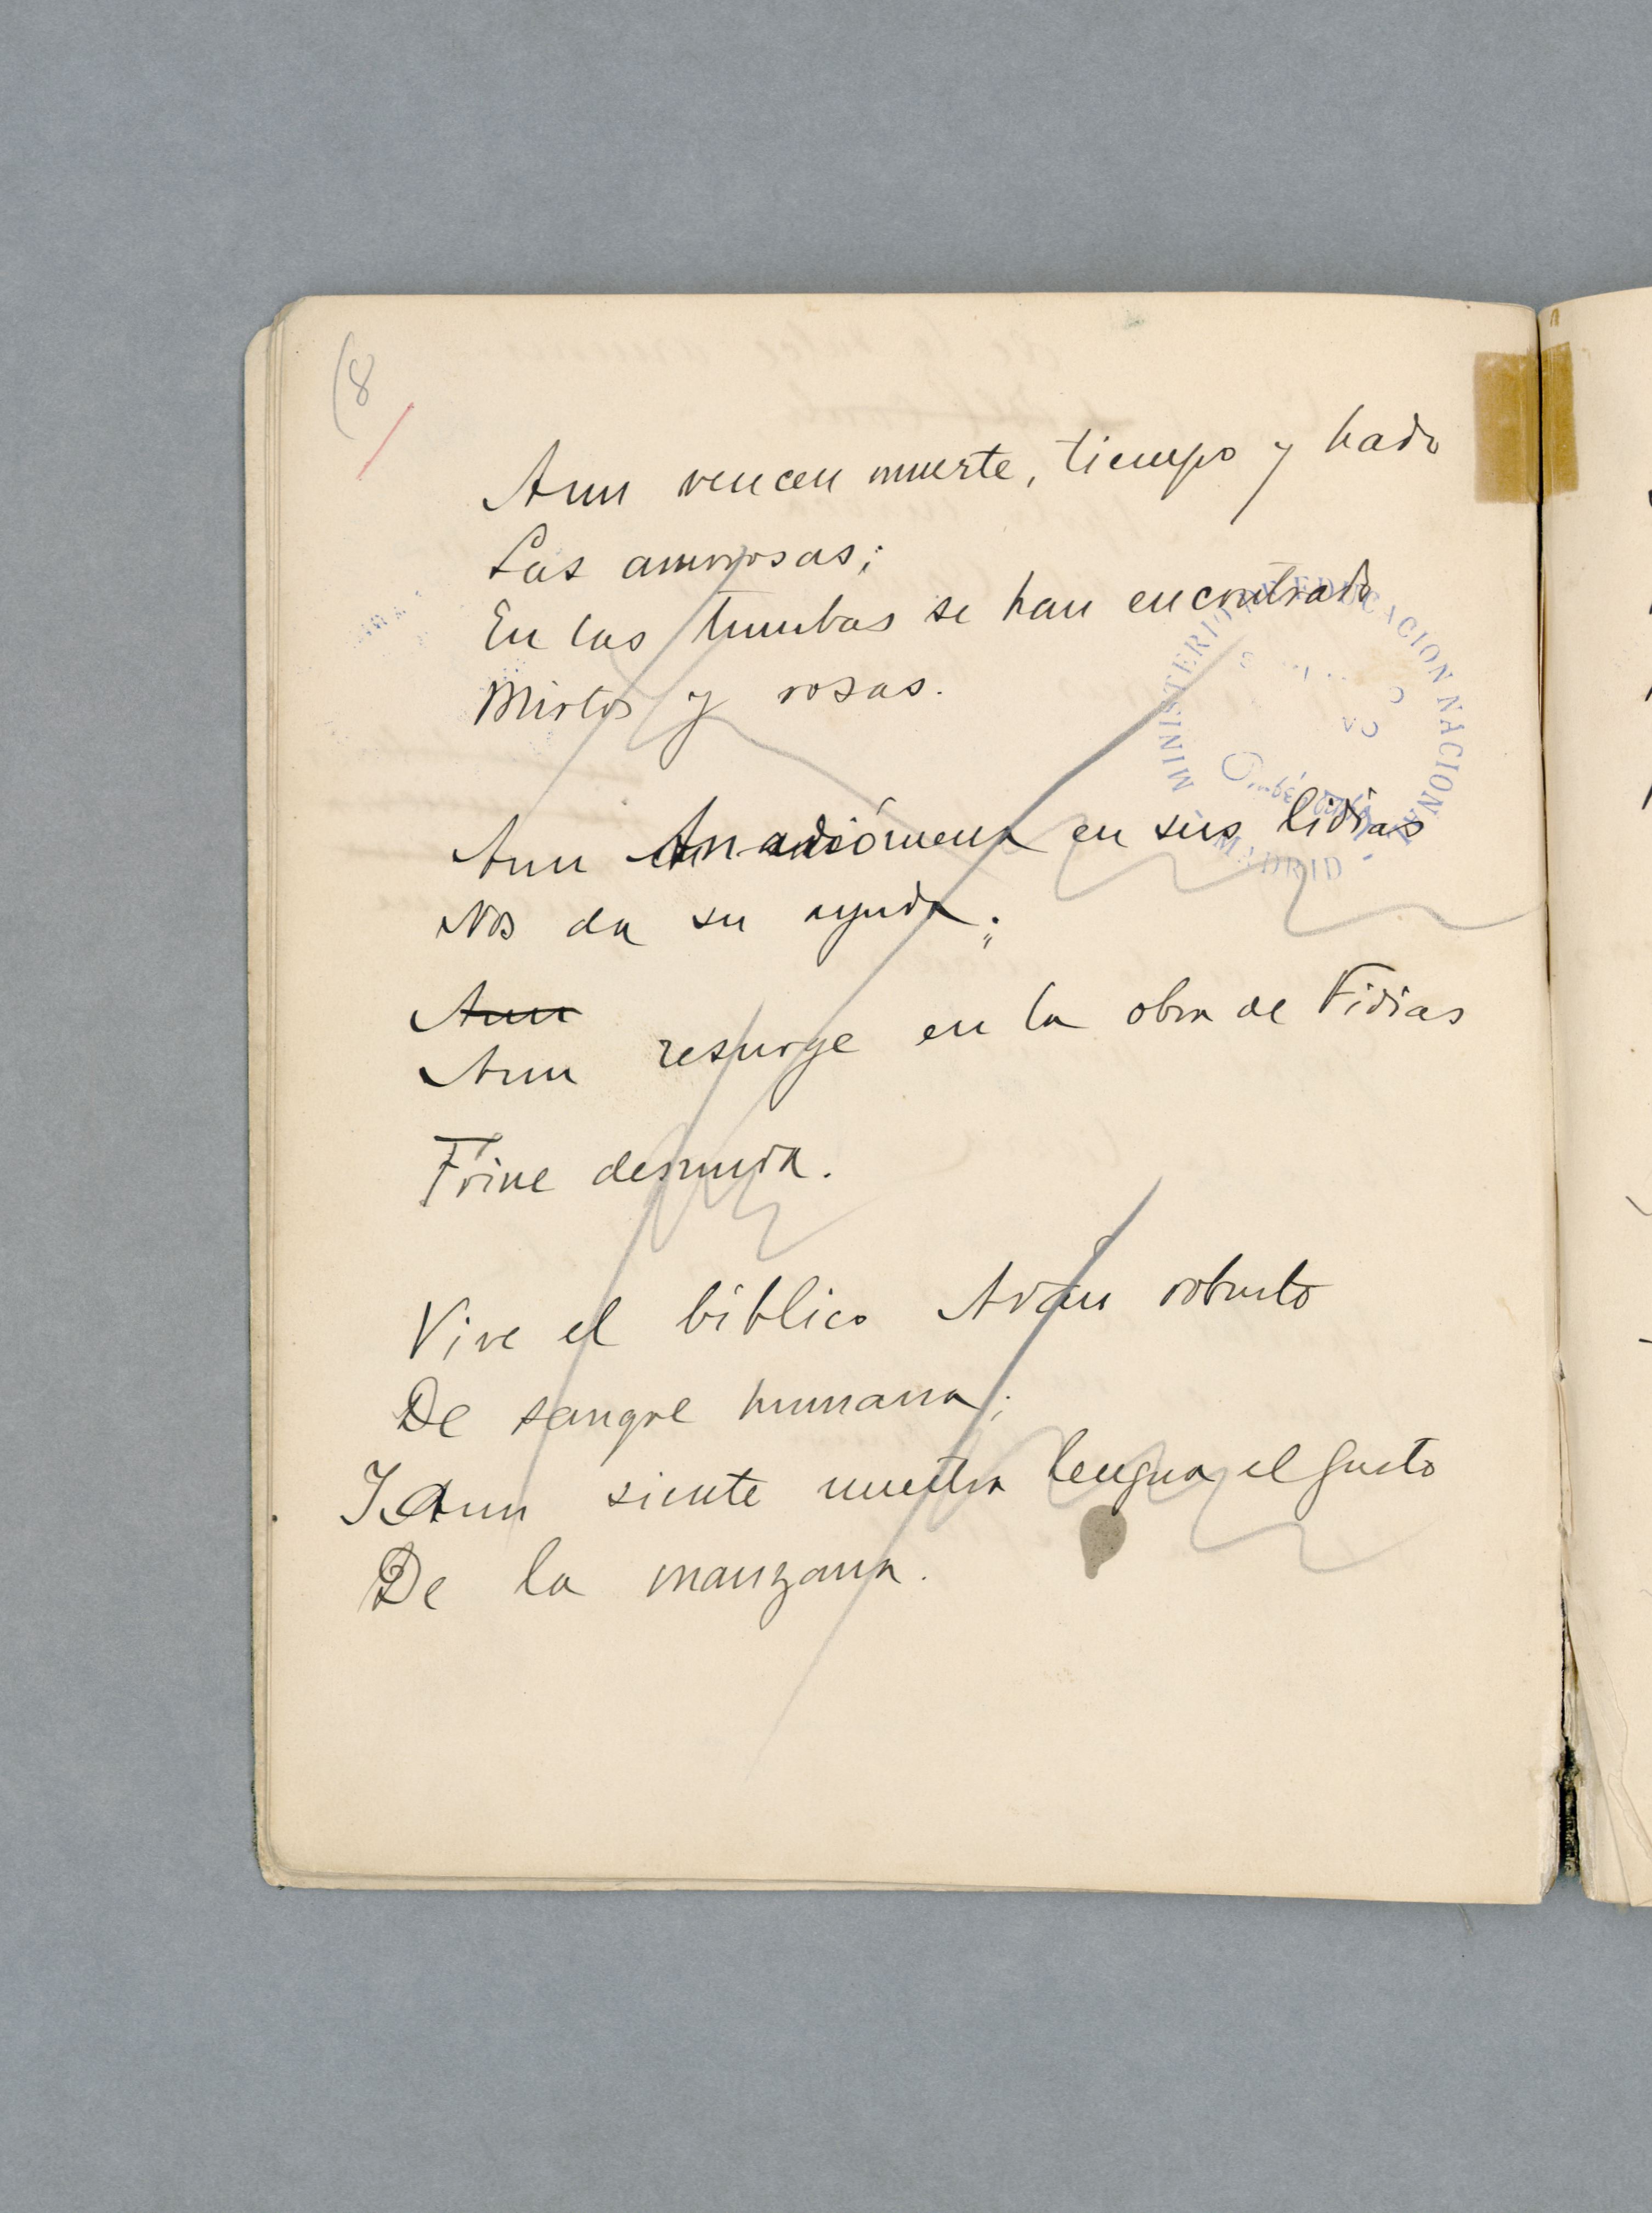 (8
Aun vencen muerte, tiempo y hado
Las amorosas;
En las tumbas se han encontrado
Mirtos y rosas.
Aun Anadiómena en sus lidias
Nos da su ayuda;
Aun
Aun resurge en la obra de Fidias
Frine desnuda.
Vive el bíblico Adán robusto
De sangre humana;
I Aun siente nuestra lengua el gusto
De la manzana.
MINISTERIO DE EDUCACION NACIONAL
MADRID